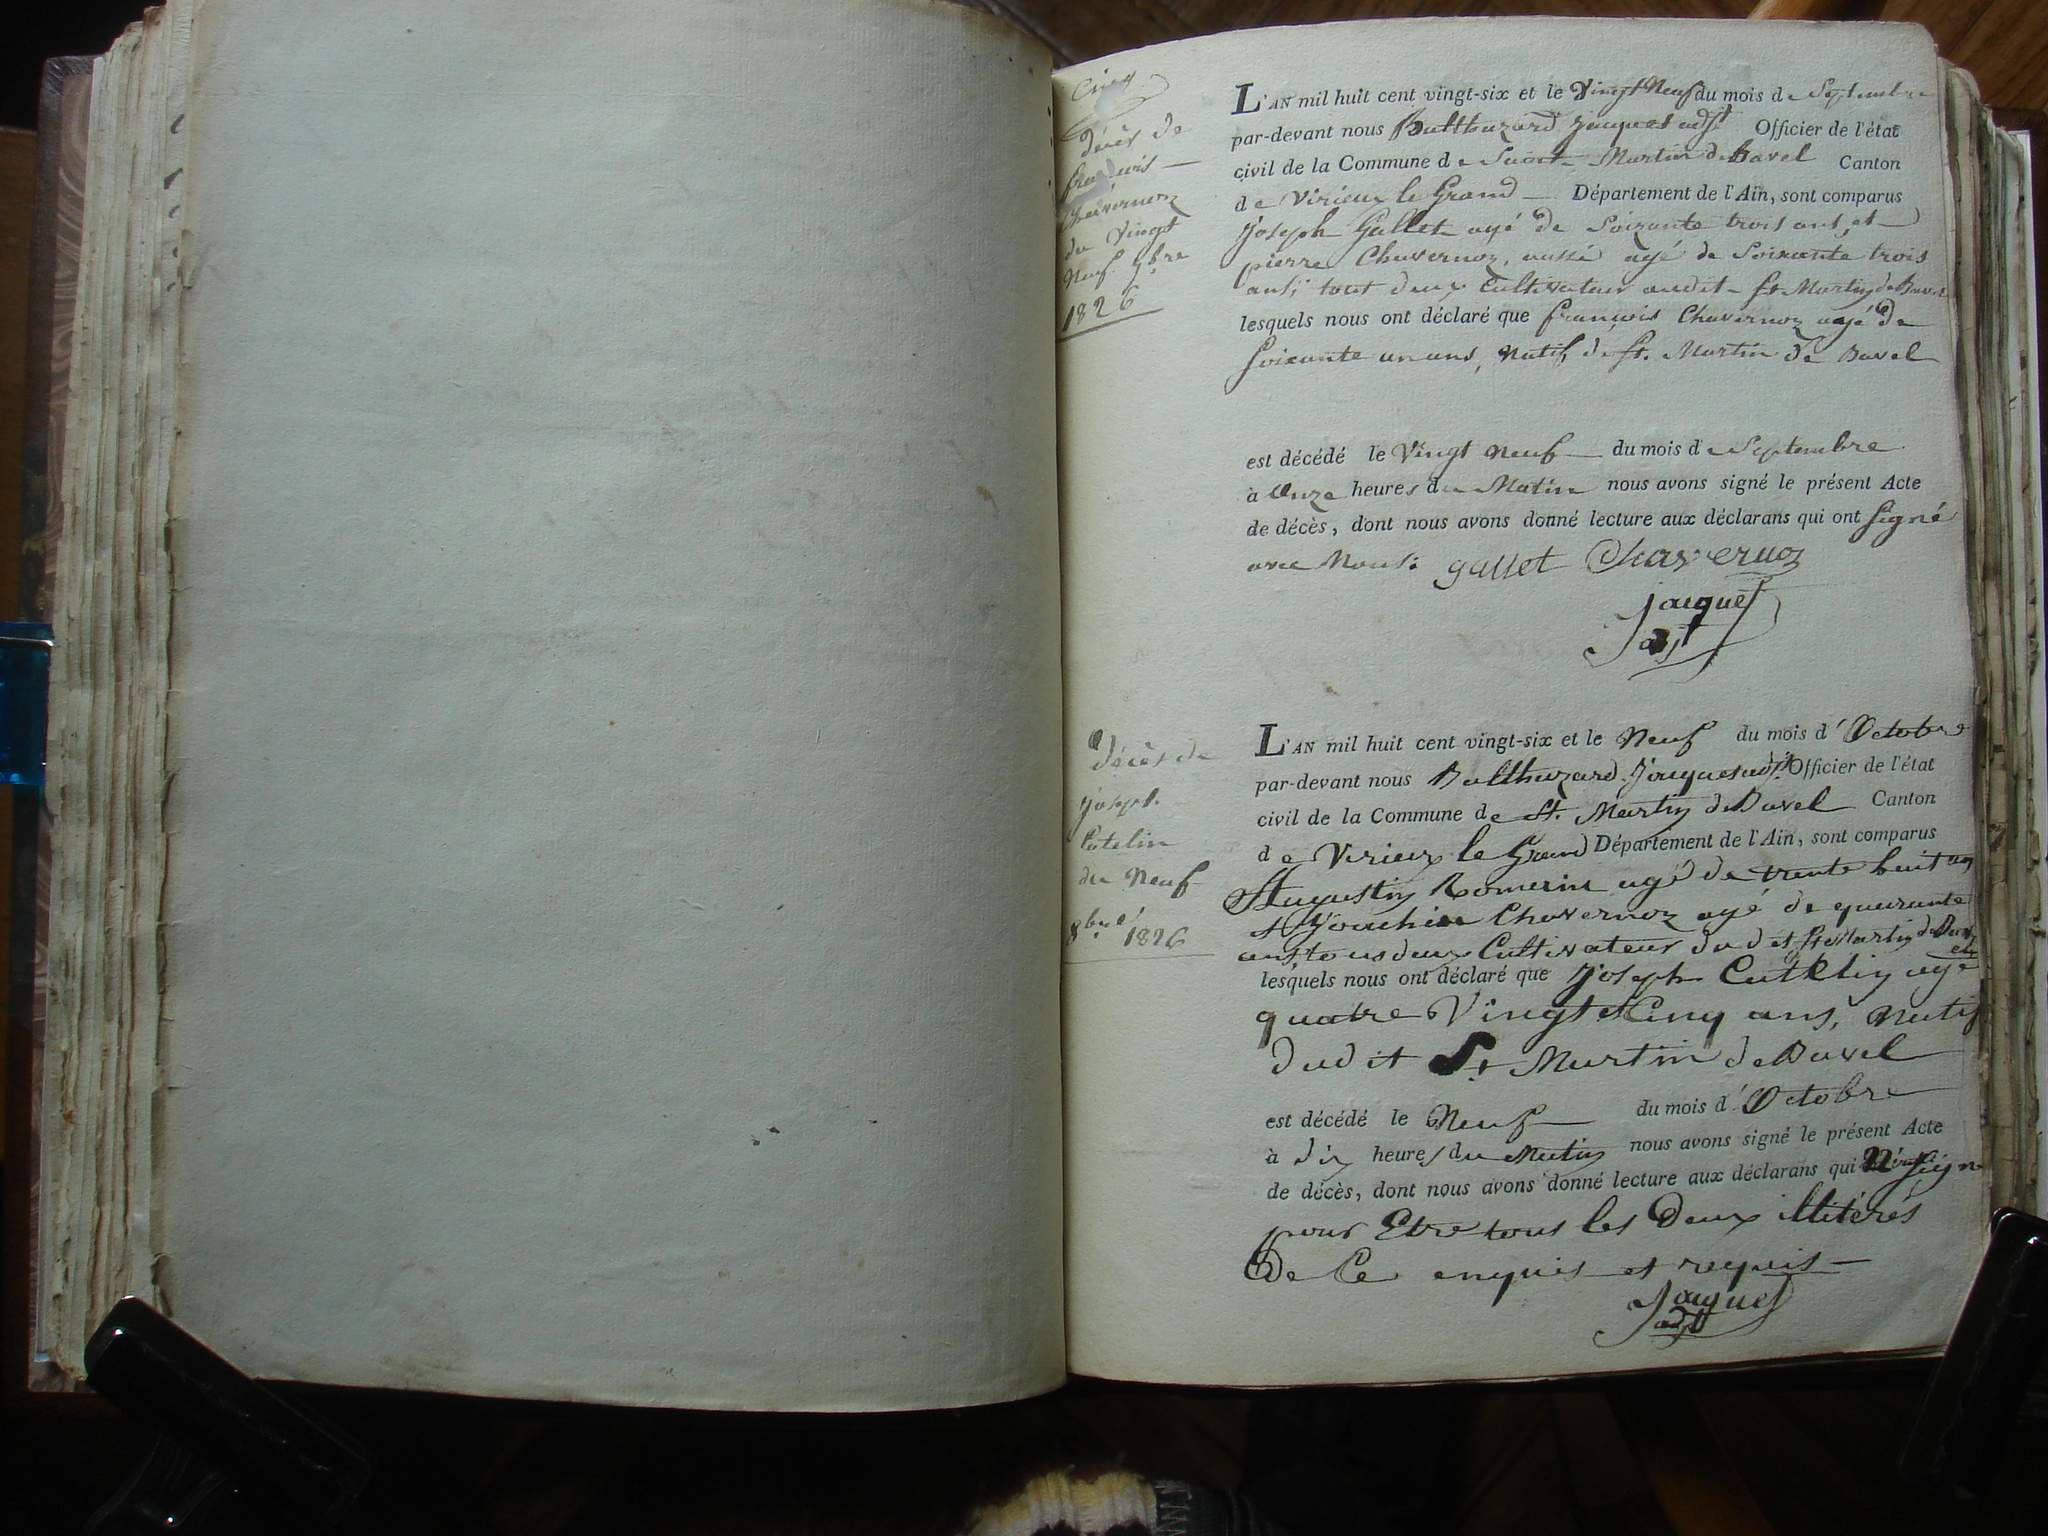 Cinq
décès de
françois
Chavernoz
du Vingt
Neuf 9bre
1826
L'AN mil huit cent vingt-six et le Vingt Neuf du mois de Septembre
par-devant nous Balthazard Jaques adjt Officier de l'état
civil de la Commune de Saint Martin de Bavel Canton
de Virieux le Grand Département de l'Ain, sont comparus
Joseph Gallet agé de Soixante trois ans, et
pierre Chavernoz, aussi agé de Soixante trois
ans, tout deux Cultivateur audit St Martin de Bavel
lesquels nous ont déclaré que françois Chavernoz agé de
Soixante un ans, Natif de St. Martin de Bavel
est décédé le Vingt Neuf du mois de Septembre
à Onze heures du Matin nous avons signé le présent Acte
de décès, dont nous avons donné lecture aux déclarans qui ont Signé
avec Nous: gallet Chavernoz
Jaques
adjt
décès de
Joseph
Catelin
du Neuf
8bre 1826
L'AN mil huit cent vingt-six et le Neuf du mois d'Octobre
par-devant nous Balthazard Jaques adjt Officier de l'état
civil de la Commune de St. Martin de Bavel Canton
de Virieux le Grand Département de l'Ain, sont comparus
Augustin Romerin agé de trente huit ans
et Joachin Chavernoz agé de quarante
ans tous deux Cultivateur dudet St Martin de Bavel
lesquels nous ont déclaré que Joseph Catelin agé
quatre Vingt et Cinq ans, Natif
dudit St Martin de Bavel
est décédé le Neuf du mois d'Octobre
à dix heures du Matin nous avons signé le présent Acte
de décès, dont nous avons donné lecture aux déclarans qui Signé
pour Etre tous les Deux illitérés
De Ce enquis et requis
Jaques
adjt